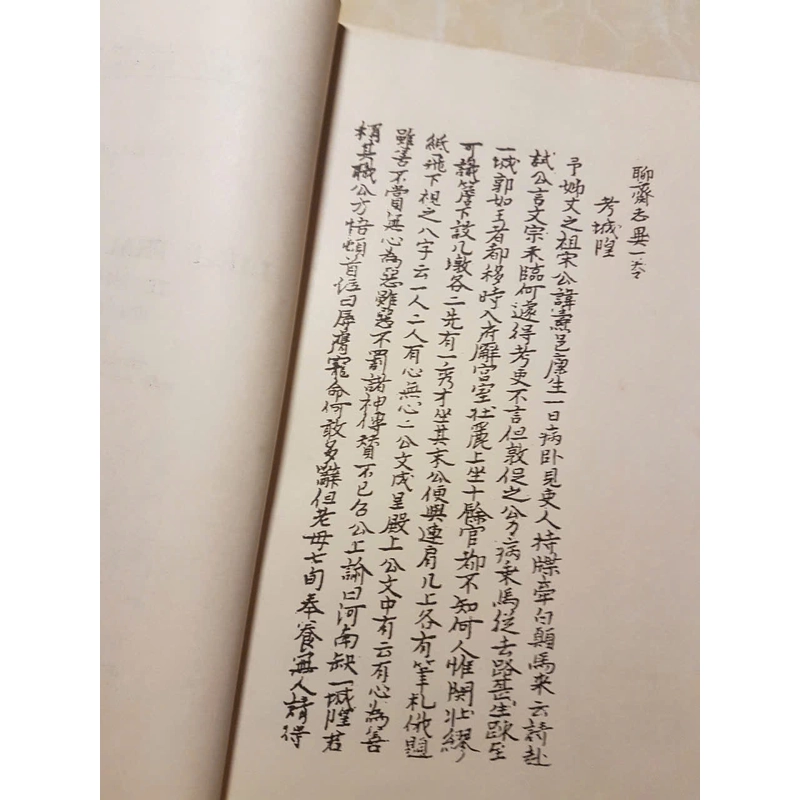 聊齋志異一卷
考城隍
予姊丈之祖宋公諱燾邑廩生一日病卧見吏人持牒牽白顛馬來云請赴
試公言文宗未臨何遽得考吏不言但敦促之公力病乘馬從去路甚生踈至
一城郭如王者都移時入府廨宮室壯麗上坐十餘官都不知何人惟関壮繆
可識簷下設几墩各二先有一秀才坐其末公便與連肩几上各有筆札俄題
紙飛下視之八字云一人二人有心無心二公文成呈殿上公文中有云有心為善
雖善不賞無心為惡雖惡不罰諸神傳贊不已召公上諭曰河南缺一城隍君
稱其職公方悟頓首泣曰辱膺寵命何敢多辭但老母七旬奉養無人請得